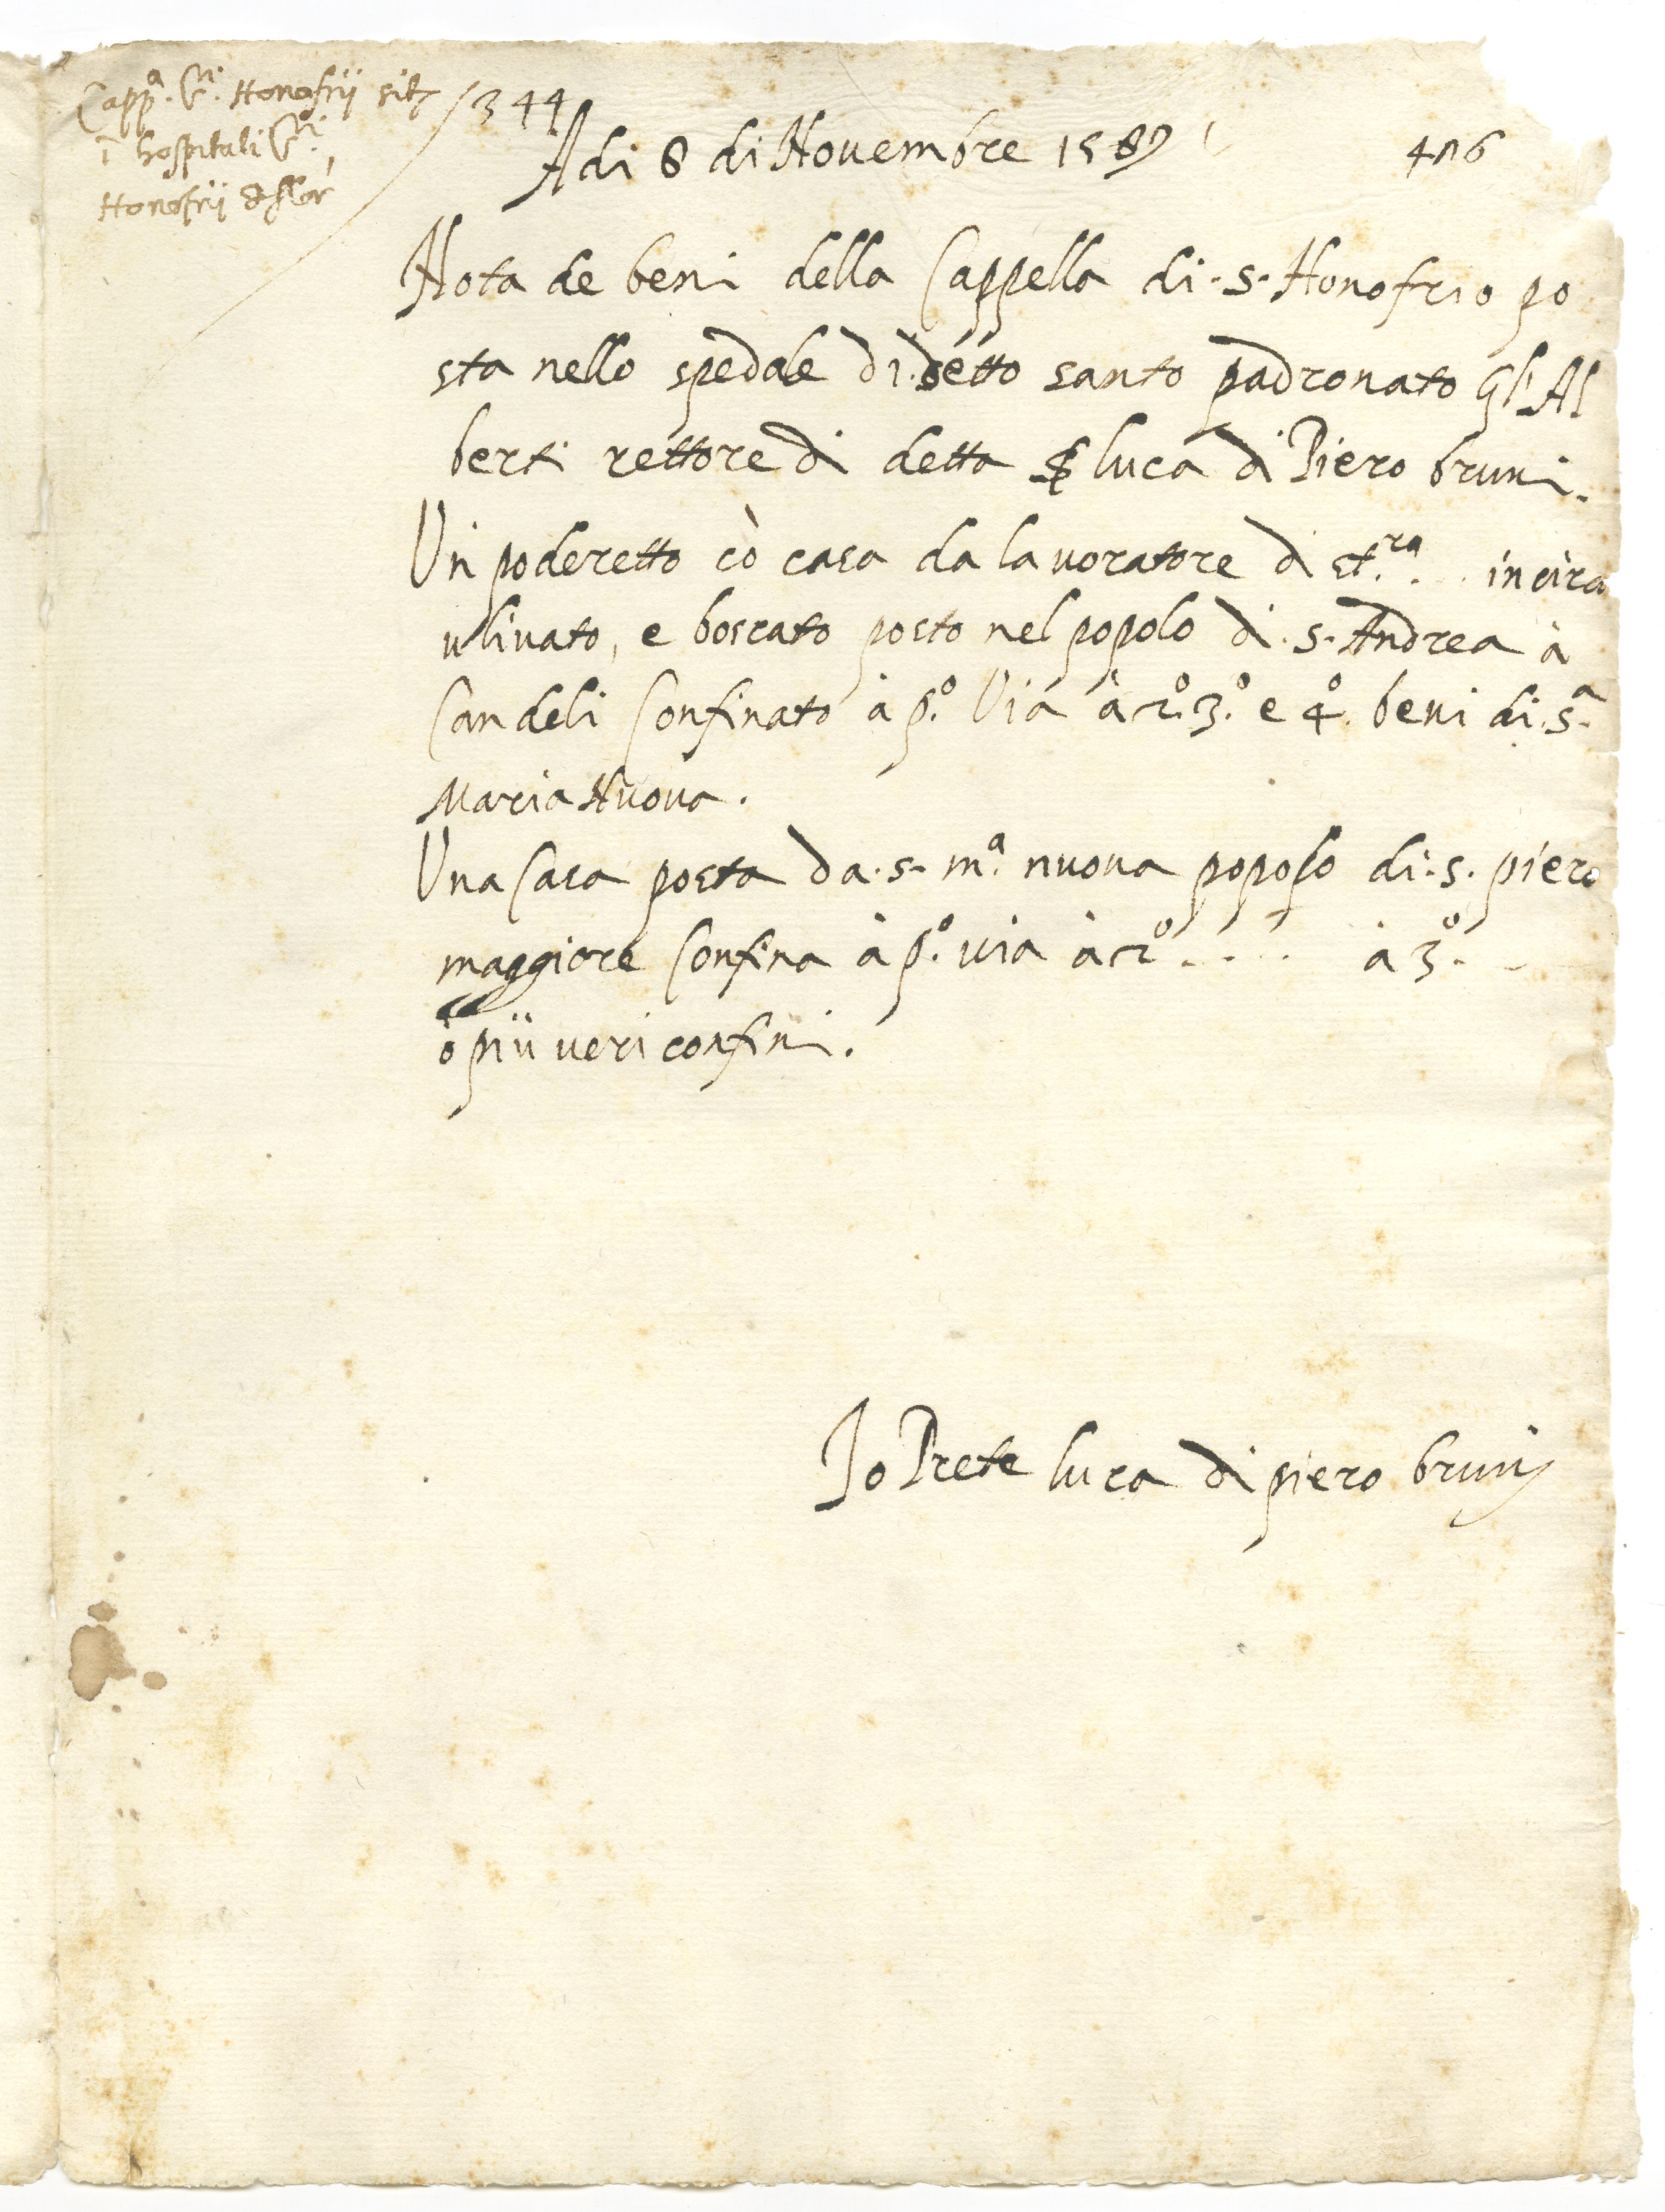 Capp.ª S.ti Honofrij sit.
ī hospitali S.ti
Honofrij de flor
344
Adi 8 di Novembre 1589
406
Nota de beni della Cappella di .S. Honofrio po
sta nello spedale di detto santo padronato gl'Al
berti rettore di detta luca di Piero bruni.
Un poderetto cò casa da lavoratore di st.ra ... incirca
ulivato, e boscato posto nel popolo di .S. Andrea à
Candeli Confinato à p.º Via à 2.º 3.º e 4.º beni di .S.ª
Maria Nuova.
Una Casa posta da .S. m.ª nuova popolo di .S. piero
maggiore Confina à p.º via à 2.º .... à 3.º ..
ò più veri confini.
Io Prete luca di piero brunj